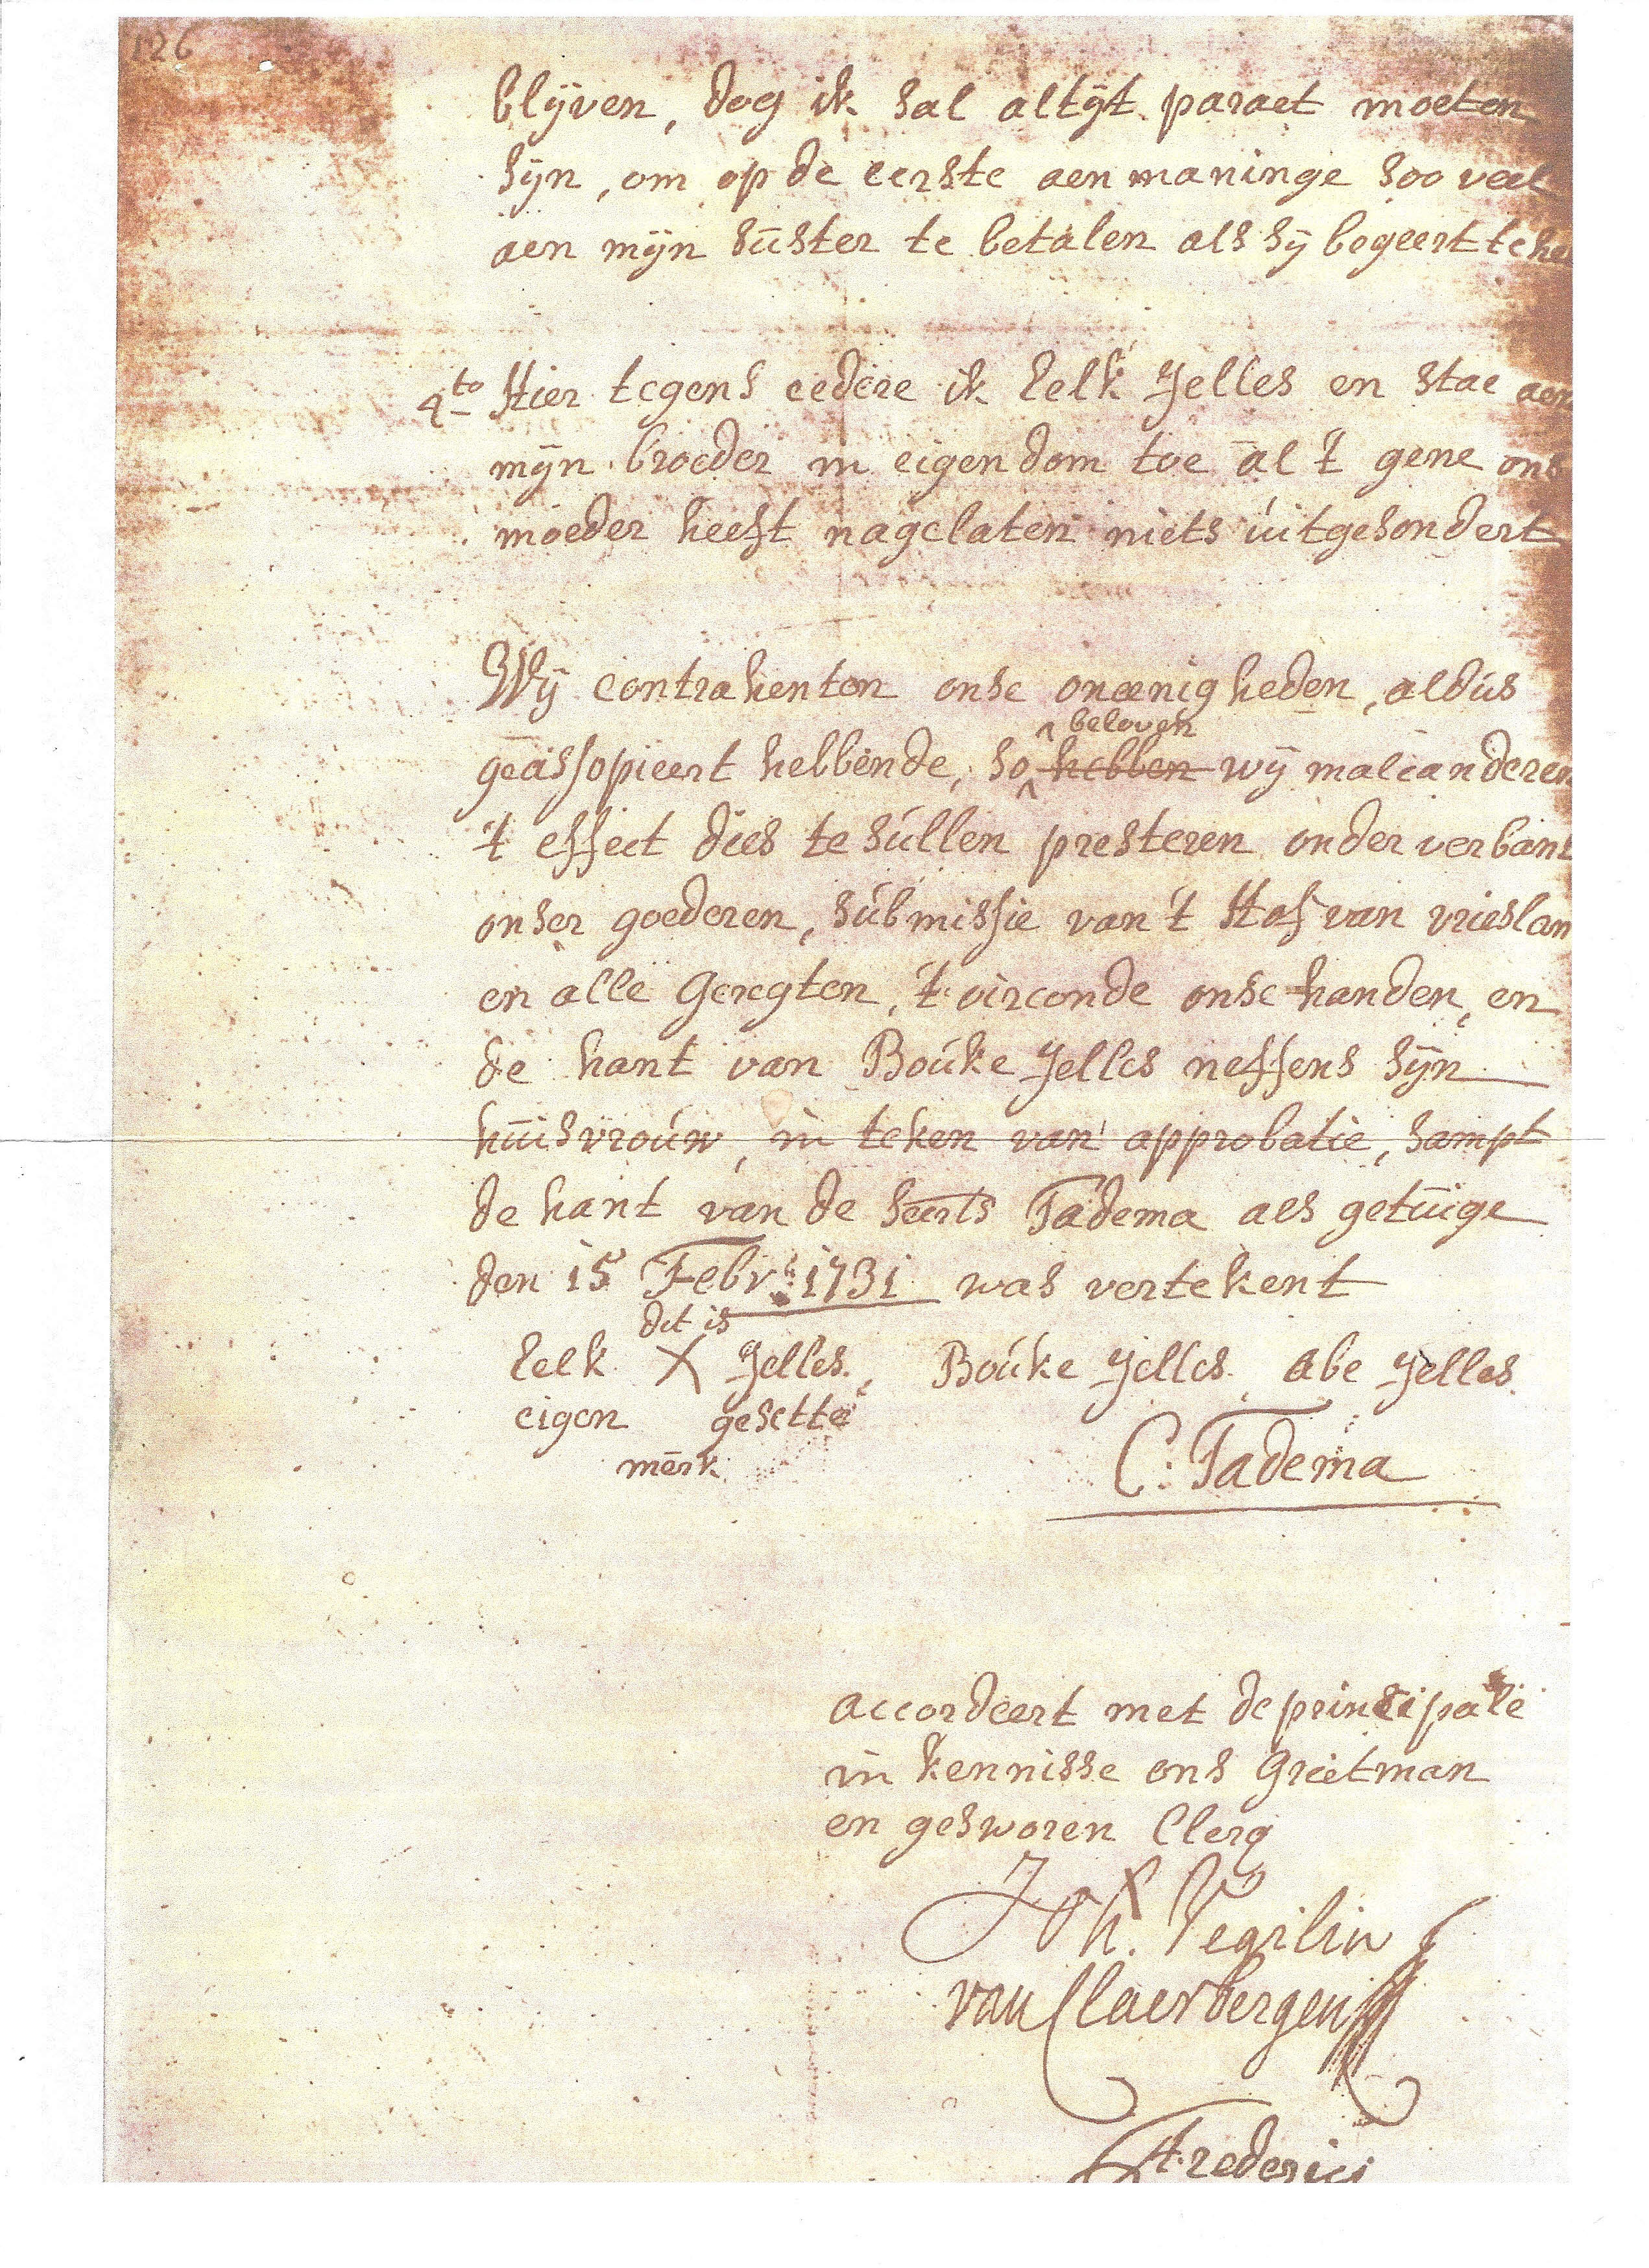 126
blijven, dog ik sal altijt paraet moeten
sijn, om op de eerste aenmaninge soo veel
aen mijn suster te betalen als sij begeert te he
4to Hier tegens cedere ik Eelk Jelles en stae aen
mijn broeder in eigendom toe al 't gene ons
moeder heeft nagelaten niets uitgesondert
Wij contrahenten onse oneenigheden, aldus
beloven
geassopieert hebbende, so hebben wij malcanderen
't effect dies te sullen presteren onder verbant
onser goederen, submissie van 't Hof van vrieslan
en alle Geregten, 't oirconde onse handen, en
de hant van Bouke Jelles neffens sijn
huisvrouw, in teken van approbatie, sampt
de hant van de Tadema als getuige
den 15 Febr: 1731 was vertekent
dit is
Eelk X Jelles, Bouke Jelles, Abe Jelles
eigen gesette
merk
C: Tadema
accordeert met de principale
in kennisse ons Grietman
en gesworen Clerq
Joh. Vegilin
van Claerbergen
Frederici